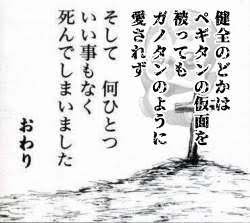 健全のどかは
ペギタンの仮面を
被っても
ガノタンのように
愛されず
そして 何ひとつ
いい事もなく
死んでしまいました
おわり